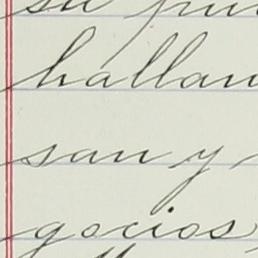 su
hallan
san y
gocios